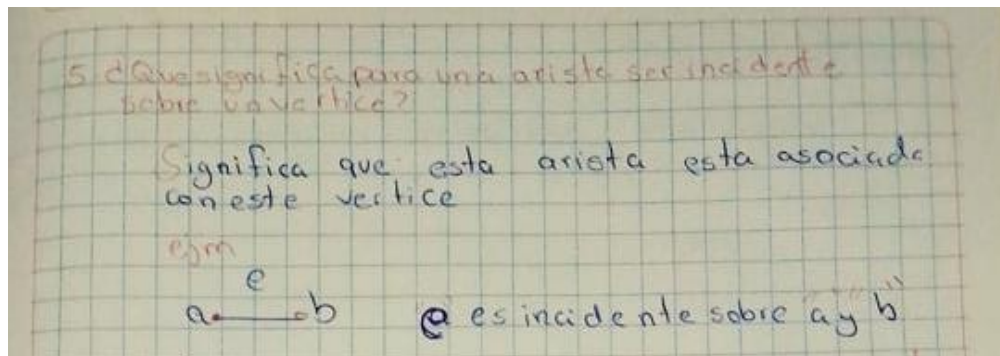 5 ¿Que significa para una arista ser incidente
sobre un vertice?
Significa que esta arista esta asociada
con este vertice
ejm
e
a b
e es incidente sobre a y b"